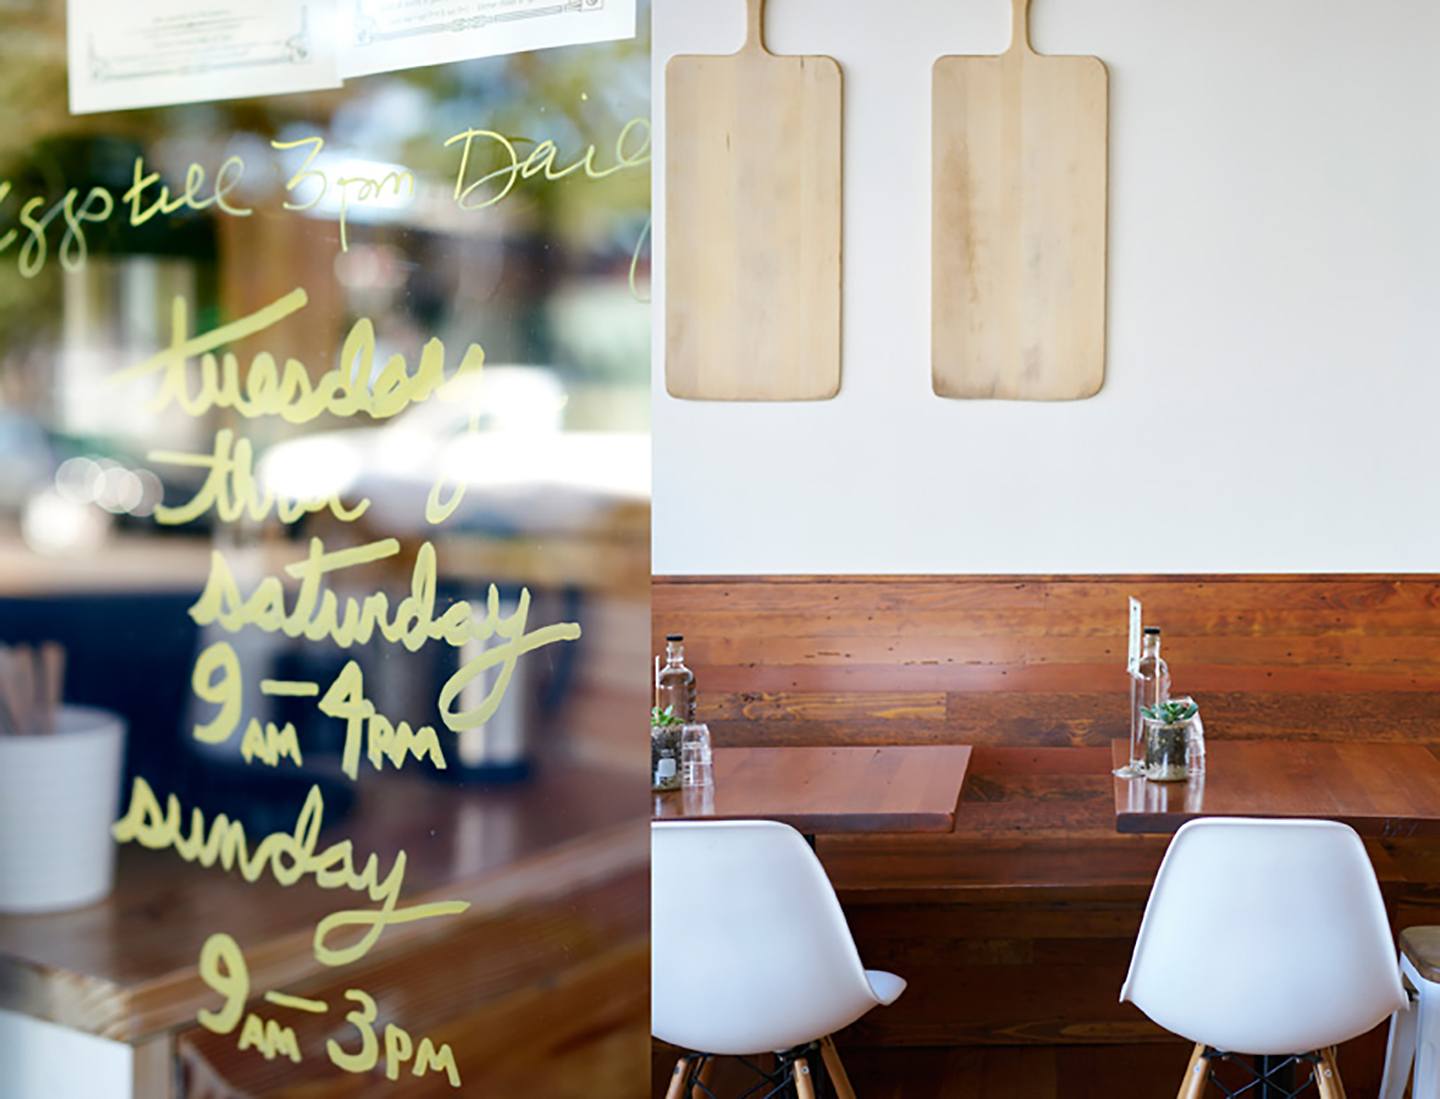 Eggs till 3pm Daily
tuesday
thru
saturday
9AM - 4PM
sunday
9AM - 3PM